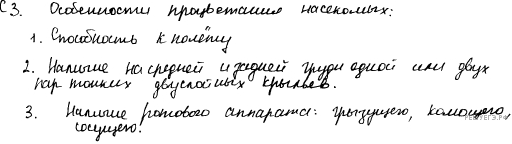 С3. Особенности процветания насекомых:
1. Способность к полёту
2. Наличие на средней и задней груди одной или двух
пар тонких двуслойных крыльев.
3. Наличие ротового аппарата: грызущего, колющего,
сосущего.
РЕШУЕГЭ.РФ